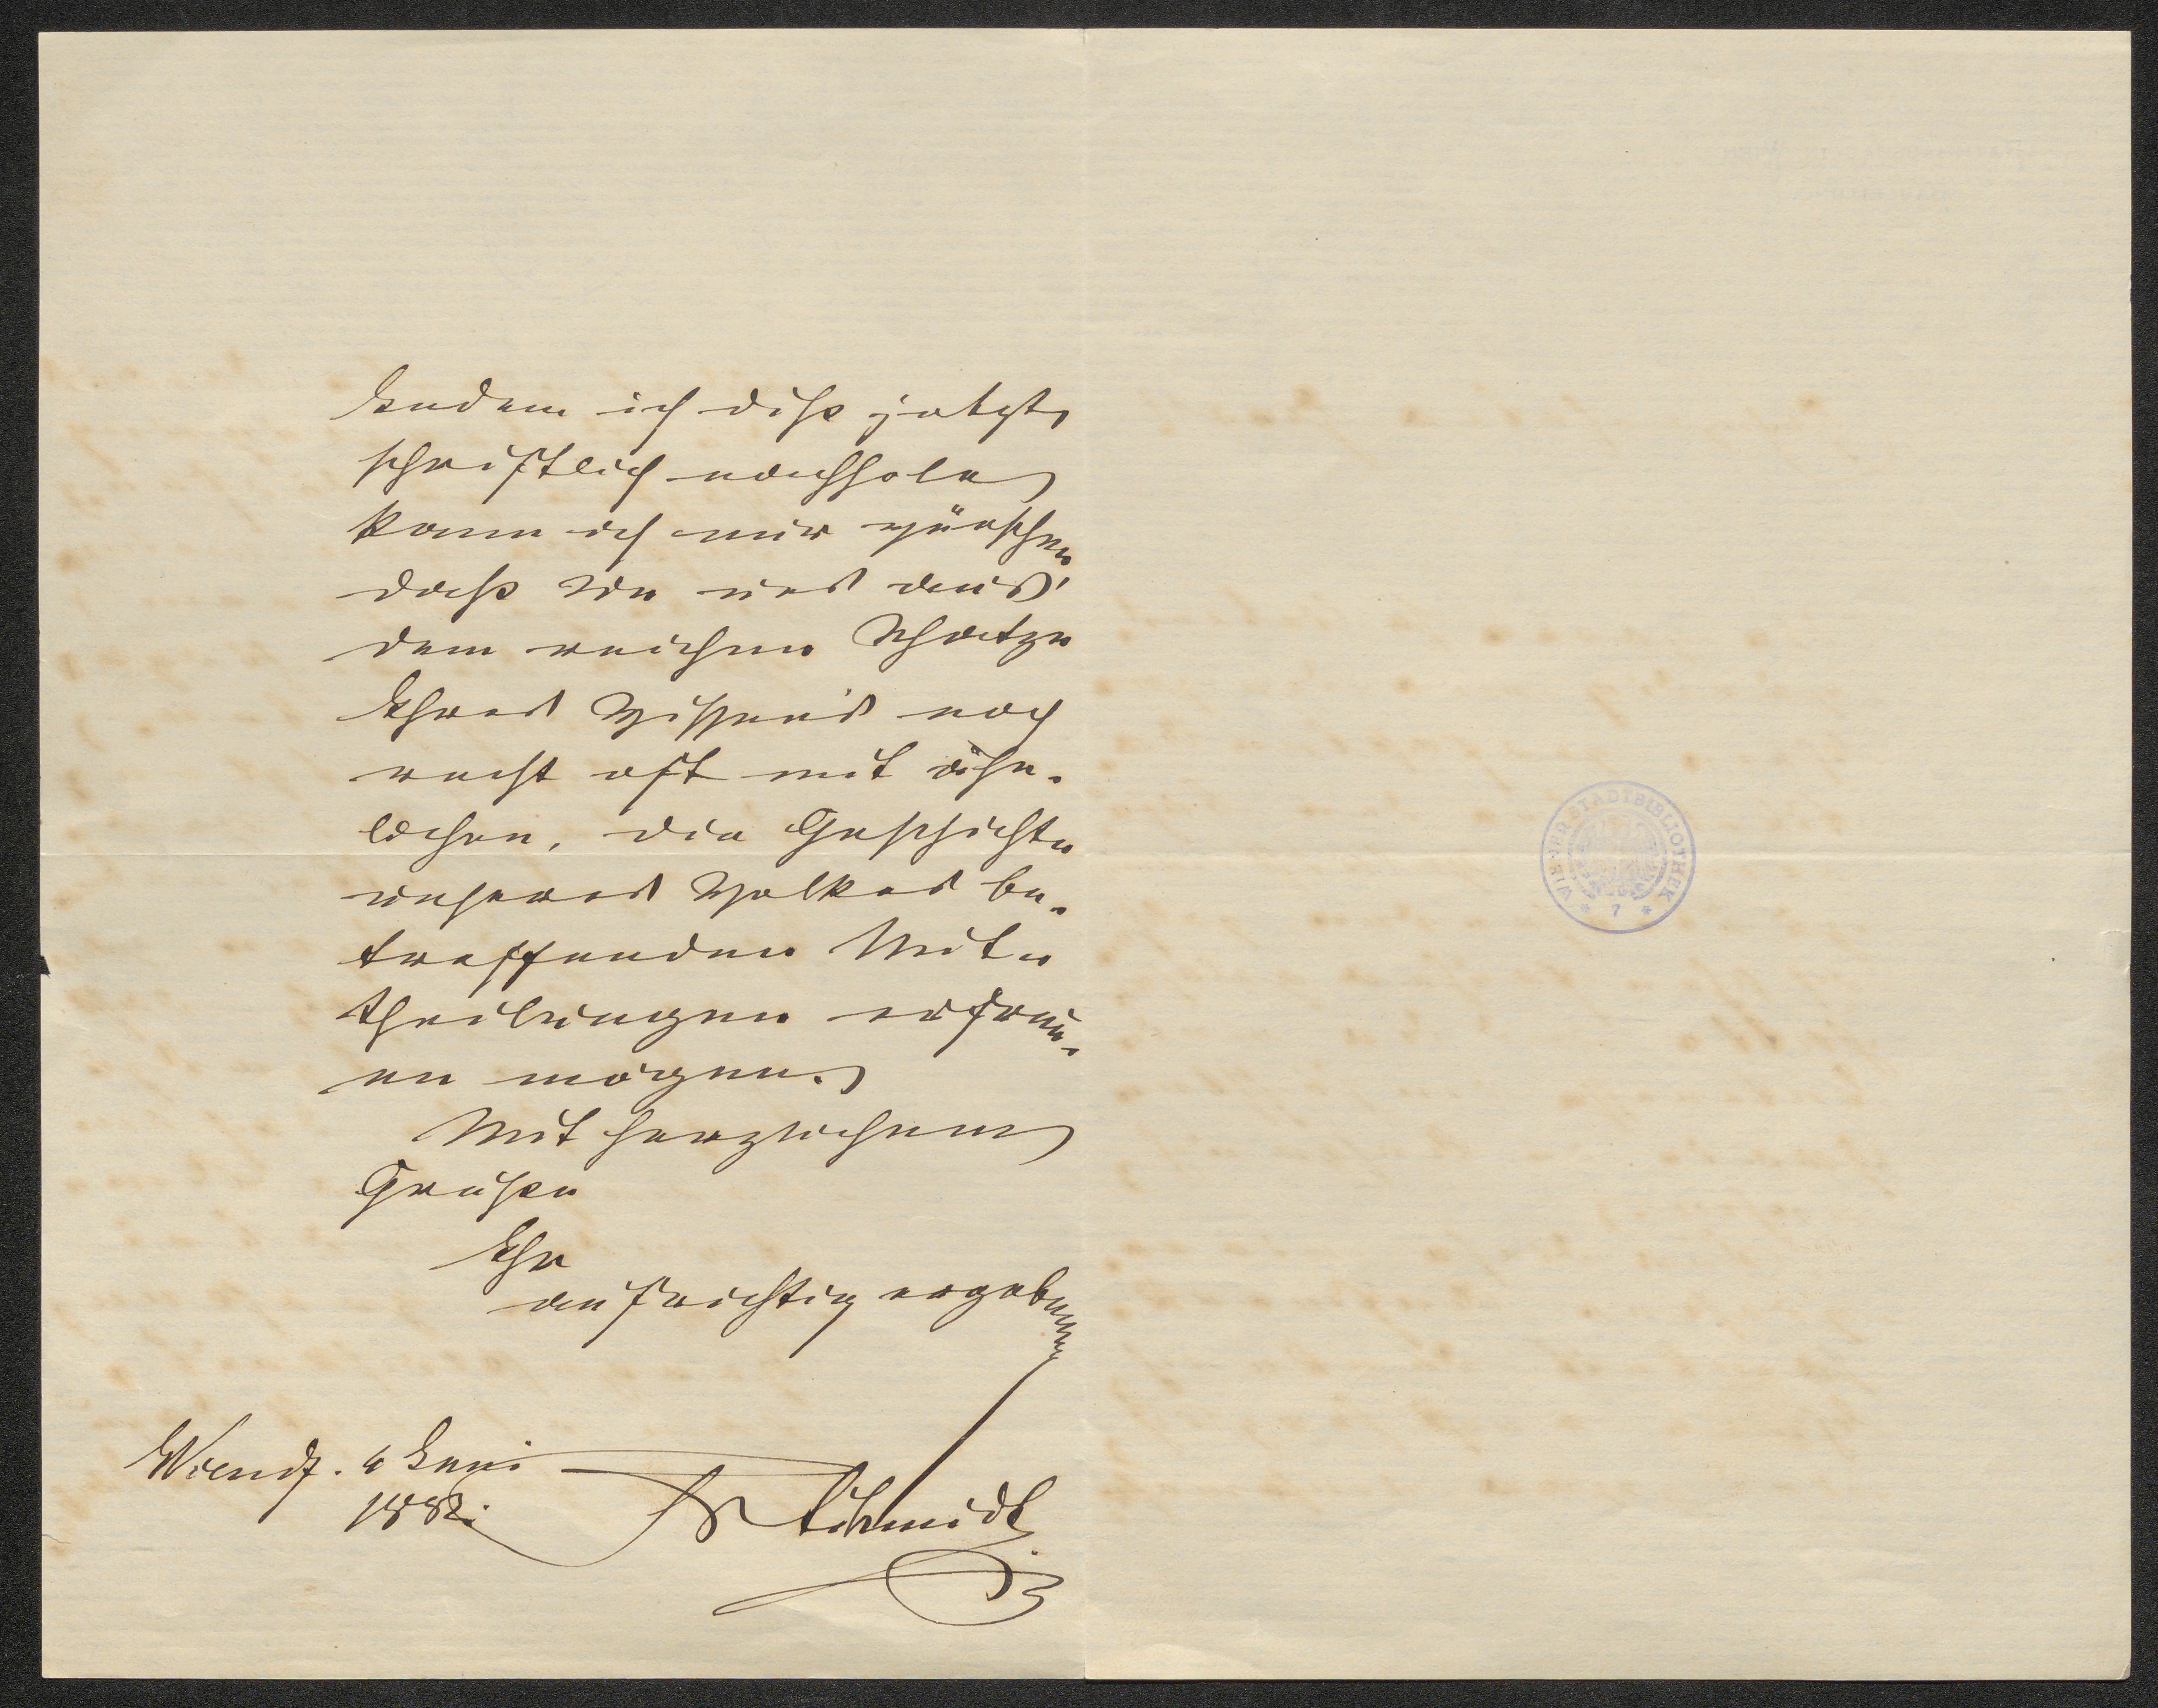 Indem ich diß jetzt
schriftlich nachhole
kann ich nur wünschen
daß Sie uns aus
dem reichen Schatze
Ihres Wissens noch
recht oft mit ähn-
lichen, die Geschichte
unseres Volkes be-
treffenden Mit-
theilungen erfreu-
en mögen.
Mit herzlichem
Gruße
Ihr
aufrichtig ergebener
Juni
1882. Fr Schmidt
WIENER STADTBIBLIOTHEK
* 7 *